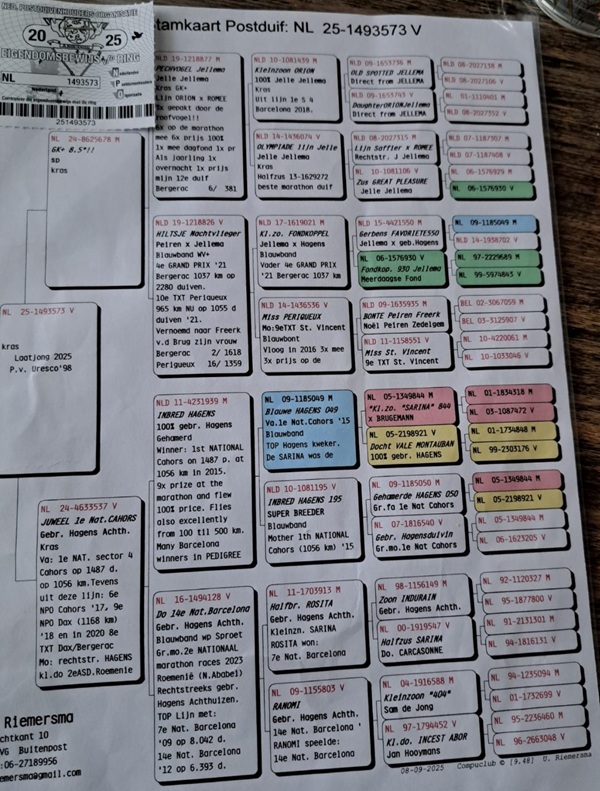 NED. POSTDUIVENHOUDERS ORGANISATIE
20 25
EIGENDOMSBEWIJS RING
NL 1493573
251493573
Stamkaart Postduif: NL 25-1493573 V
NL 24-8625678 M
GK+ 8.5°!!
sp
kras
NL 25-1493573 V
kras
Laatjong 2025
P.v. Uresco'98
NL 24-4633537 V
JUWEEL 1e Nat.CAHORS
Gebr. Hagens Achth.
Kras
Va: 1e NAT. sector 4
Cahors op 1487 d.
op 1056 km.Tevens
uit deze lijn: 6e
NPO Cahors '17, 9e
NPO Dax (1168 km)
'18 en in 2020 8e
TXT Dax/Bergerac
Mo: rechtstr. HAGENS
kl.do 2eASD.Roemenie
NLD 19-1218877 M
PECHVOGEL Jellema
Jelle Jellema
Kras GK+
Lijn ORION x ROMEE
gepakt door de
roofvogel!!
op de marathon
mee 6x prijs 100%
1x mee dagfond 1x pr
Als jaarling 1x
overnacht 1x prijs
mijn 12e duif
Bergerac 6/ 381
NLD 19-1218826 V
HILTSJE Nachtvlieger
Peiren x Jellema
Blauwband WV+
4e GRAND PRIX '21
Bergerac 1037 km op
2280 duiven.
10e TXT Perigueux
965 km NU op 1055 d
duiven '21.
Vernoemd naar Freerk
v.d Brug zijn vrouw
Bergerac 2/ 1618
Perigueux 16/ 1359
NLD 11-4231939 M
INBRED HAGENS
100% gebr. Hagens
Gehamerd
Winner: 1st NATIONAL
Cahors on 1487 p. at
1056 km in 2015.
9x prize at the
marathon and flew
100% price. Flies
also excellently
from 100 till 500 km.
Many Barcelona
winners in PEDIGREE
NL 16-1494128 V
Do 14e Nat.Barcelona
Gebr. Hagens Achth.
Blauwband wp Sproet
Gr.mo.2e NATIONAAL
marathon races 2023
Roemenië (N.Ababei)
Rechtstreeks gebr.
Hagens Achthuizen.
TOP Lijn met:
7e Nat. Barcelona
'09 op 8.042 d.
14e Nat. Barcelona
'12 op 6.393 d.
NLD 10-1081439 M
Kleinzoon ORION
100% Jelle Jellema
Kras
Uit lijn 1e S 4
Barcelona 2018.
NLD 14-1436074 V
OLYMPIADE lijn Jelle
Jelle Jellema
Kras
Halfzus 13-1629272
beste marathon duif
NLD 17-1619021 M
Kl.zo. FONDKOPPEL
Jellema x Hagens
Blauwband
Vader 4e GRAND PRIX
'21 Bergerac 1037 km
NLD 14-1436536 V
Miss PERIGUEUX
Mo:9eTXT St. Vincent
Blauwbont
Vloog in 2016 3x mee
3x prijs op de
NL 09-1185049 M
Blauwe HAGENS 049
Va.1e Nat.Cahors '15
Blauwband
TOP Hagens kweker.
De SARINA was de
NLD 10-1081195 V
INBRED HAGENS 195
SUPER BREEDER
Blauwband
Mother 1th NATIONAL
Cahors (1056 km) '15
NL 11-1703913 M
Halfbr. ROSITA
Gebr. Hagens Achth.
Kleinzn. SARINA
ROSITA won:
7e Nat. Barcelona
NL 09-1155803 V
RANOMI
Gebr. Hagens Achth.
14e Nat. Barcelona '
RANOMI speelde:
14e Nat. Barcelona
NLD 09-1653736 M
OLD SPOTTED JELLEMA
Direct from JELLEMA
NLD 09-1653743 V
DaughterORIONJellema
Direct from JELLEMA
NLD 08-2027315 M
Lijn Saffier x ROMEE
Rechtstr. J Jellema
NLD 10-1081106 V
Zus GREAT PLEASURE
Jelle Jellema
NLD 15-4421550 M
Gerbens FAVORIETE550
Jellema x geb.Hagens
NL 06-1576930 V
Fondkop. 930 Jellema
Meerdaagse Fond
NLD 09-1635935 M
BONTE Peiren Freerk
Noël Peiren Zedelgem
NLD 11-1158551 V
Miss St. Vincent
9e TXT St. Vincent
NL 05-1349844 M
"Kl.zo. "SARINA" 844
x BRUGEMANN
NL 05-2198921 V
Docht VALE MONTAUBAN
100% gebr. HAGENS
NL 09-1185050 M
Gehamerde HAGENS 050
Gr.fa 1e Nat Cahors
NL 07-1816540 V
Gebr. Hagensduivin
Gr.mo.1e Nat Cahors
NL 98-1156149 M
Zoon INDURAIN
Gebr. Hagens Achth.
NL 00-1919547 V
Halfzus SARINA
Do. CARCASONNE
NL 04-1916588 M
Kleinzoon "404"
Sam de Jong
NL 97-1794452 V
Kl.do. INCEST ABOR
Jan Hooymans
NLD 08-2027138 M
NLD 08-2027106 V
NL 01-1110401 M
NLD 08-2027352 V
NLD 07-1187307 M
NLD 07-1187408 V
NL 06-1576929 M
NL 06-1576930 V
NL 09-1185049 M
NLD 14-1938702 V
NL 97-2229689 M
NL 99-5974843 V
BEL 02-3067059 M
BEL 03-3125907 V
NL 10-4220061 M
NL 10-1033046 V
NL 01-1834318 M
NL 03-1087472 V
NL 01-1734848 M
NL 99-2303176 V
NL 05-1349844 M
NL 05-2198921 V
NL 05-1349844 M
NL 06-1623205 V
NL 92-1120327 M
NL 95-1877800 V
NL 91-2131301 M
NL 94-1816131 V
NL 94-1235094 M
NL 01-1732699 V
NL 95-2236460 M
NL 96-2663048 V
Riemersma
chtkant 10
VG Buitenpost
:06-27189956
emersma@gmail.com
08-09-2025 Compuclub © [9.48] U. Riemersma